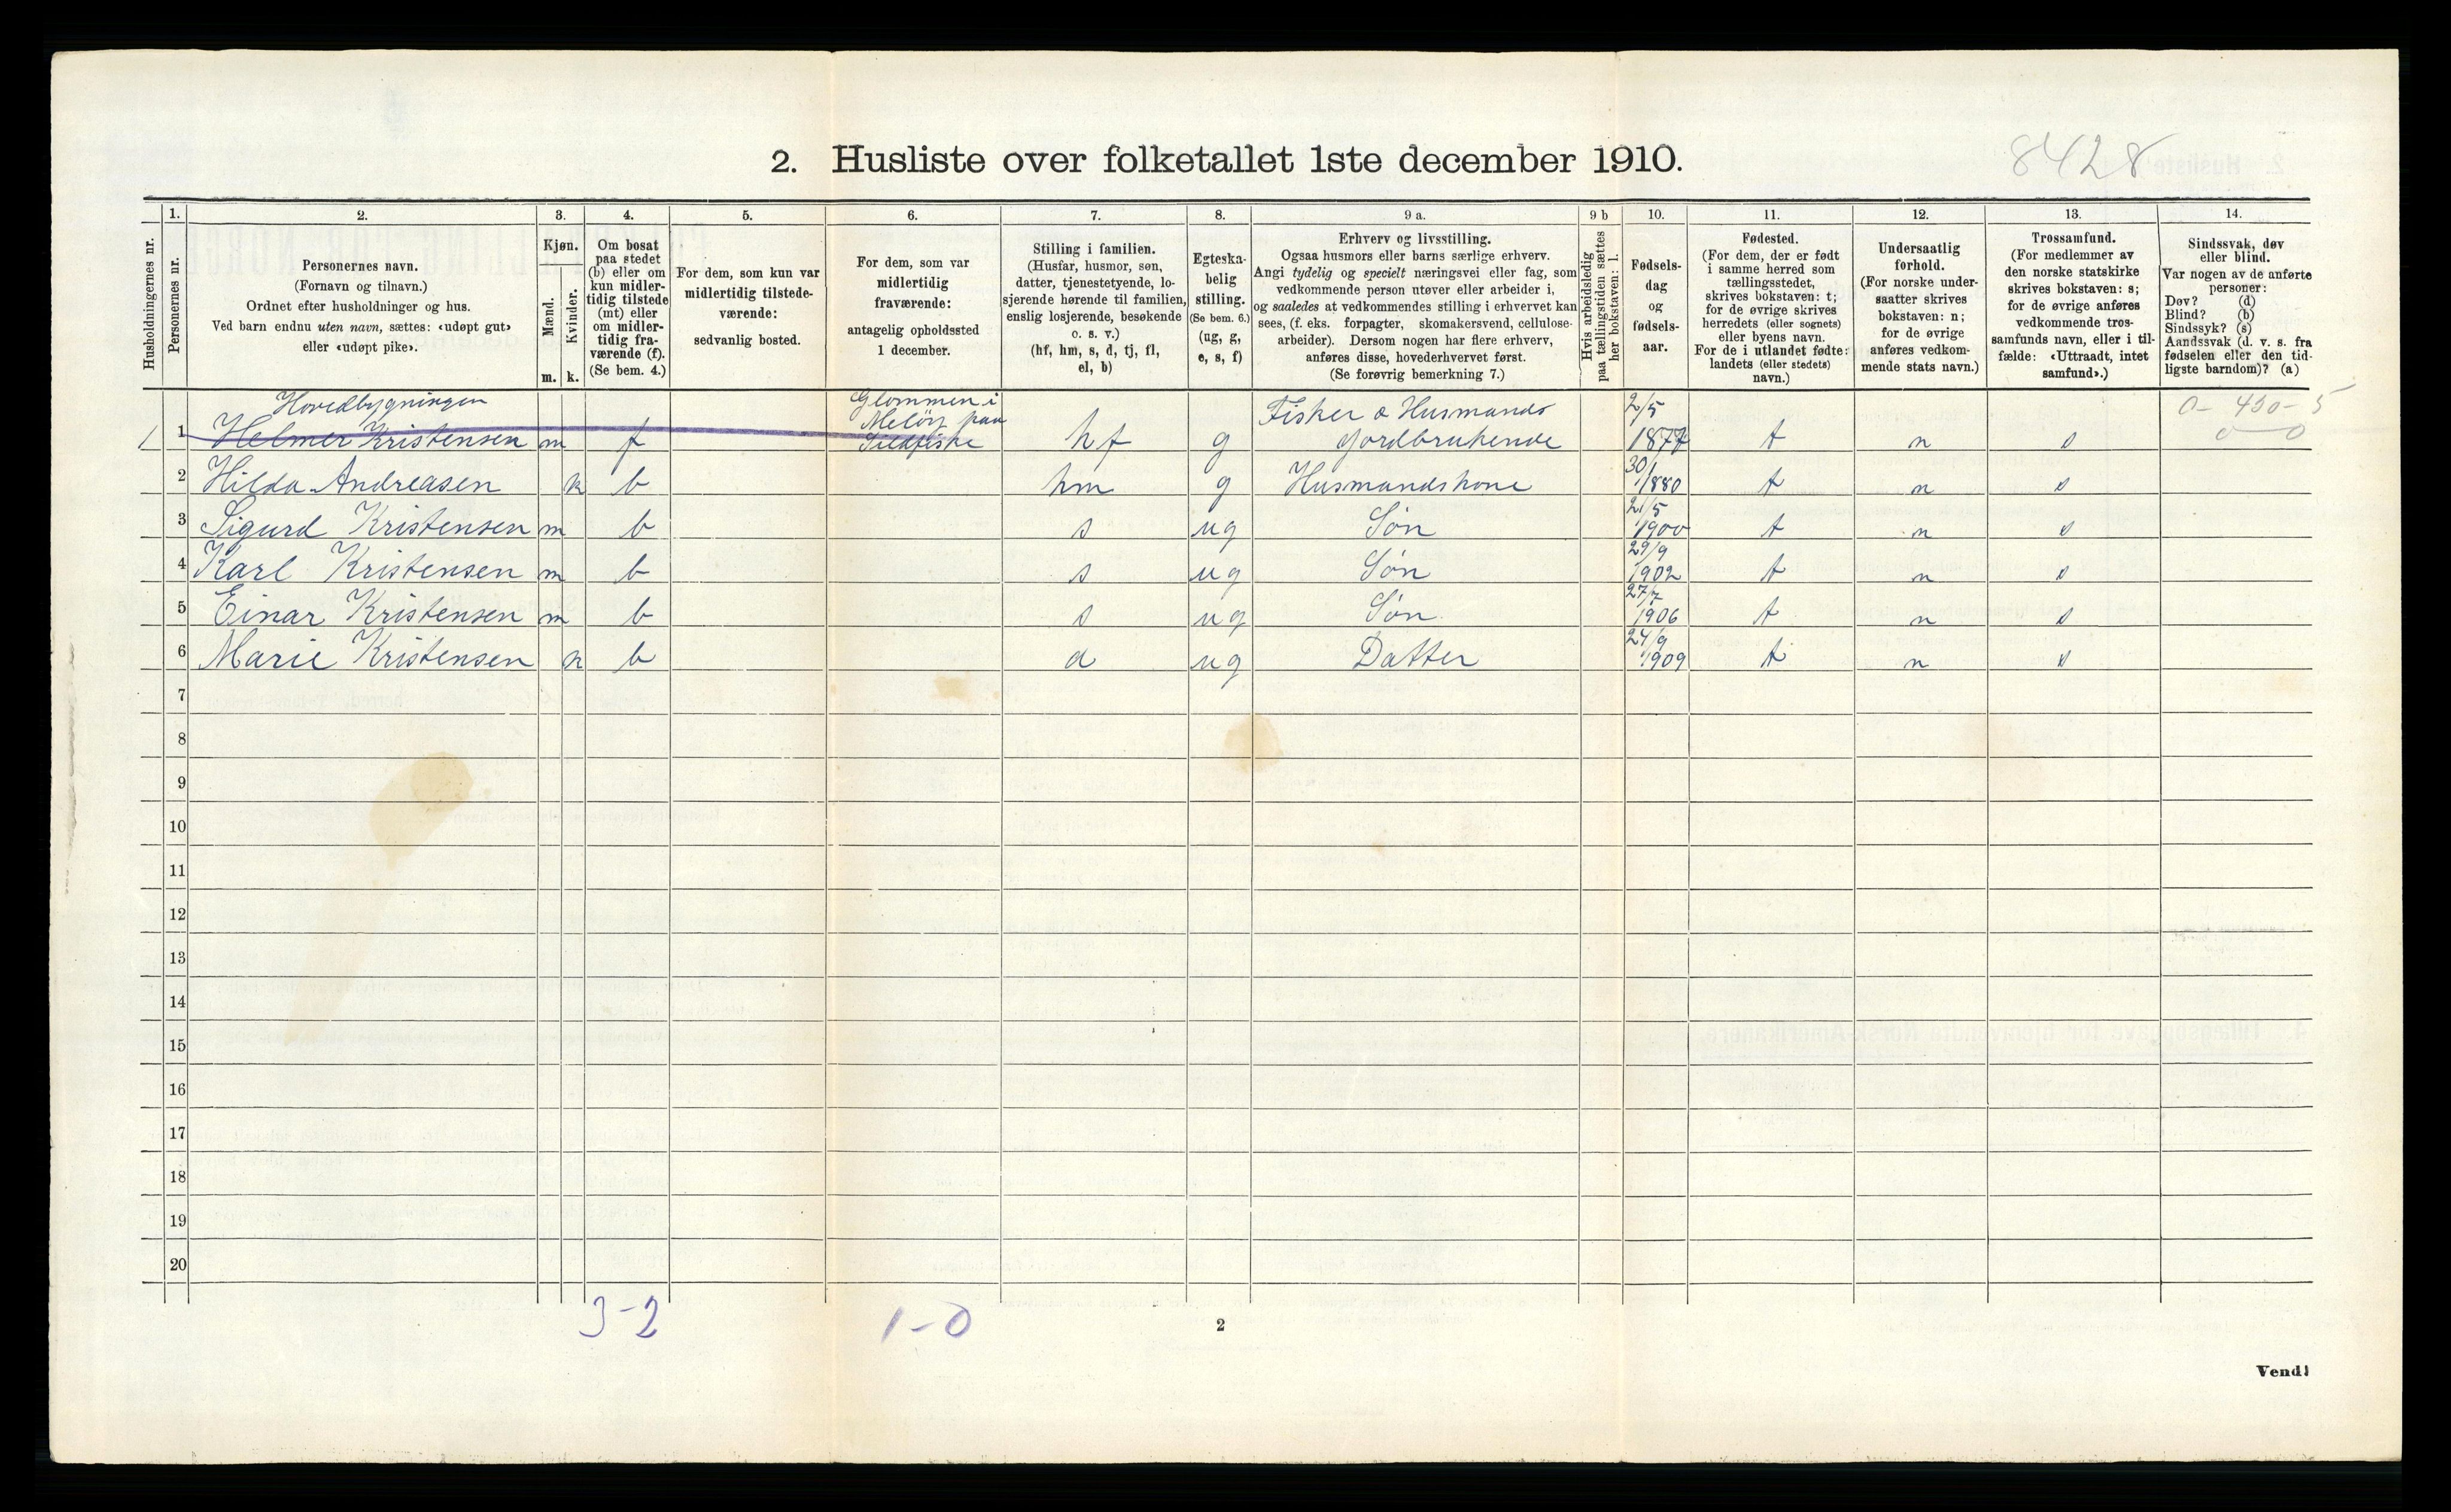 2. Husliste over folketallet 1ste december 1910.
8428
Husholdningernes nr.
1.
Personernes nr.
2.
Personernes navn.
(Fornavn og tilnavn.)
Ordnet efter husholdninger og hus.
Ved barn endnu uten navn, sættes: «udøpt gut»
eller «udøpt pike».
3.
Kjøn.
Mænd.
Kvinder.
m. k.
4.
Om bosat
paa stedet
(b) eller om
kun midler-
tidig tilstede
(mt) eller
om midler-
tidig fra-
værende (f).
(Se bem. 4.)
5.
For dem, som kun var
midlertidig tilstede-
værende:
sedvanlig bosted.
6.
For dem, som var
midlertidig
fraværende:
antagelig opholdssted
1 december.
7.
Stilling i familien.
(Husfar, husmor, søn,
datter, tjenestetyende, lo-
sjerende hørende til familien,
enslig losjerende, besøkende
o. s. v.)
(hf, hm, s, d, tj, fl,
el, b)
8.
Egteska-
belig
stilling.
(Se bem. 6.)
(ug, g,
e, s, f)
9 a.
Erhverv og livsstilling.
Ogsaa husmors eller barns særlige erhverv.
Angi tydelig og specielt næringsvei eller fag, som
vedkommende person utøver eller arbeider i,
og saaledes at vedkommendes stilling i erhvervet kan
sees, (f. eks. forpagter, skomakersvend, cellulose-
arbeider). Dersom nogen har flere erhverv,
anføres disse, hovederhvervet først.
(Se forøvrig bemerkning 7.)
9 b
Hvis arbeidsledig
paa tællingstiden sættes
her bokstaven: l.
10.
Fødsels-
dag
og
fødsels-
aar.
11.
Fødested.
(For dem, der er født
i samme herred som
tællingsstedet,
skrives bokstaven: t;
for de øvrige skrives
herredets (eller sognets)
eller byens navn.
For de i utlandet fødte:
landets (eller stedets)
navn.)
12.
Undersaatlig
forhold.
(For norske under-
saatter skrives
bokstaven: n;
for de øvrige
anføres vedkom-
mende stats navn.)
13.
Trossamfund.
(For medlemmer av
den norske statskirke
skrives bokstaven: s;
for de øvrige anføres
vedkommende tros-
samfunds navn, eller i til-
fælde: «Uttraadt, intet
samfund».)
14.
Sindssvak, døv
eller blind.
Var nogen av de anførte
personer:
Døv? (d)
Blind? (b)
Sindssyk? (s)
Aandssvak (d. v. s. fra
fødselen eller den tid-
ligste barndom)? (a)
Hovedbygningen
Glommen i
Meløy paa
Sildfiske
Fisker & Husmands
0-450-5
0-0
1 1 Helmer Kristensen m f hf g Jordbrukende 2/5 1877 t n s
2 Hilda Andreasen k b hm g Husmandskone 30/1 1880 t n s
3 Sigurd Kristensen m b s ug Søn 21/5 1900 t n s
4 Karl Kristensen m b s ug Søn 29/9 1902 t n s
5 Einar Kristensen m b s ug Søn 27/7 1906 t n s
6 Marie Kristensen k b d ug Datter 24/9 1909 t n s
7
8
9
10
11
12
13
14
15
16
17
18
19
20
3-2
1-0
2
Vend!